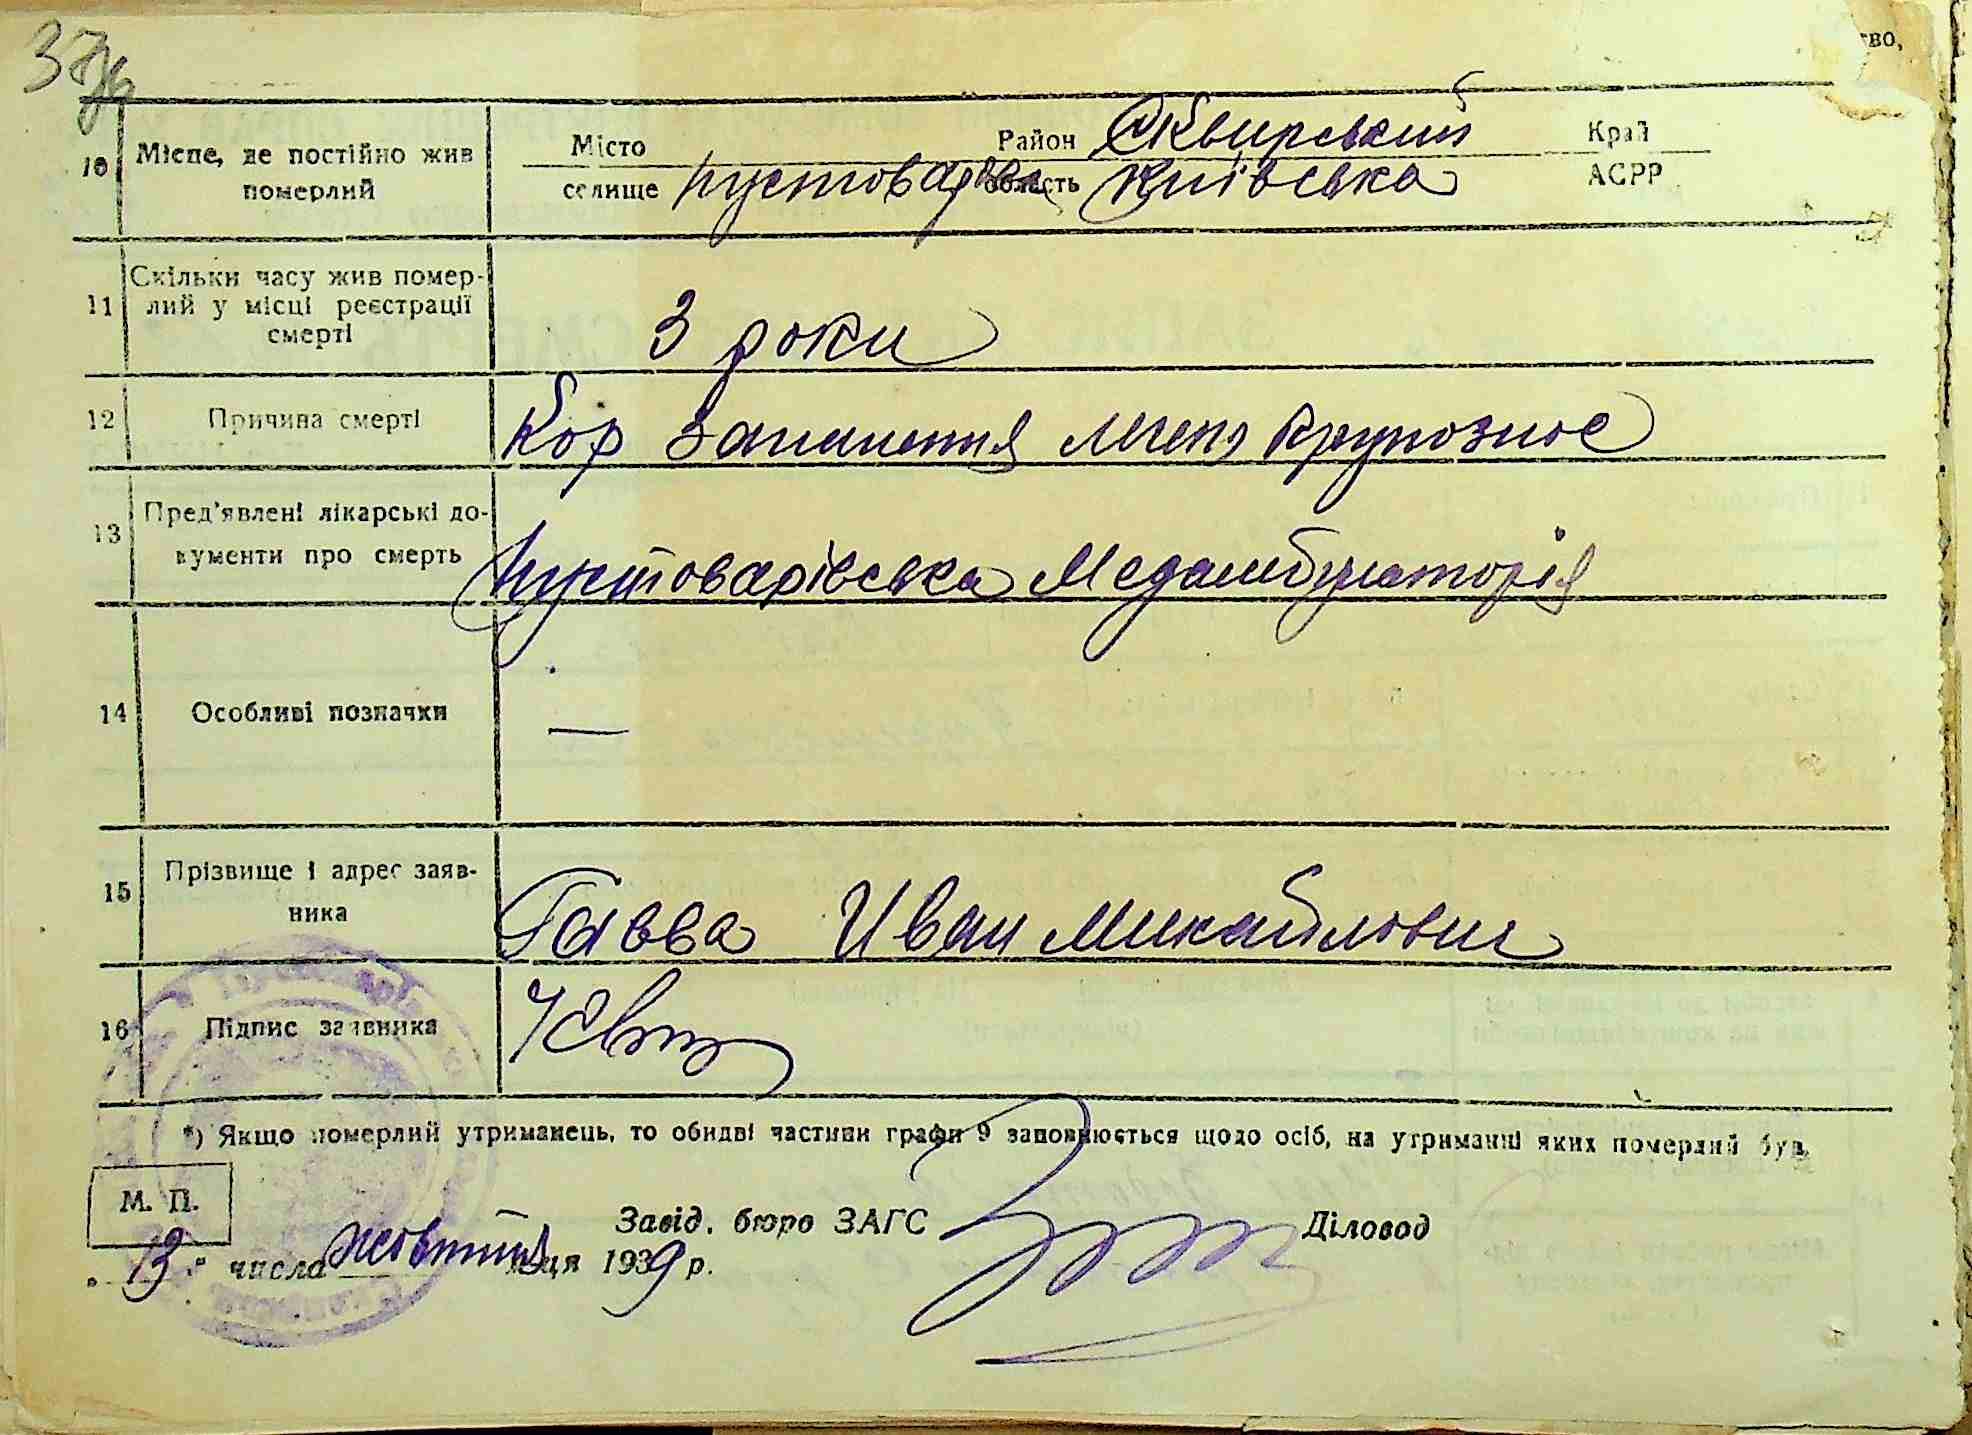 37
тво,
10 Місце, де постійно жив померлий
Місто Район Сквирський Край
селище Пустоварівка область Київська АСРР
11 Скільки часу жив помер-
лий у місці реєстрації
смерті
3 роки
12 Причина смерті
Кор Запалення легень крупозное
13 Пред'явлені лікарські до-
кументи про смерть
Пустоварівська Медамбулаторія
14 Особливі позначки
—
15 Прізвище і адрес заяв-
ника
Гавва Иван Михайлович
16 Підпис заявника
*) Якщо померлий утриманець, то обидві частини графи 9 заповнюється щодо осіб, на утриманні яких померлий був.
М. П.
Завід. бюро ЗАГС Діловод
„13" числа жовтня місяця 1939 р.